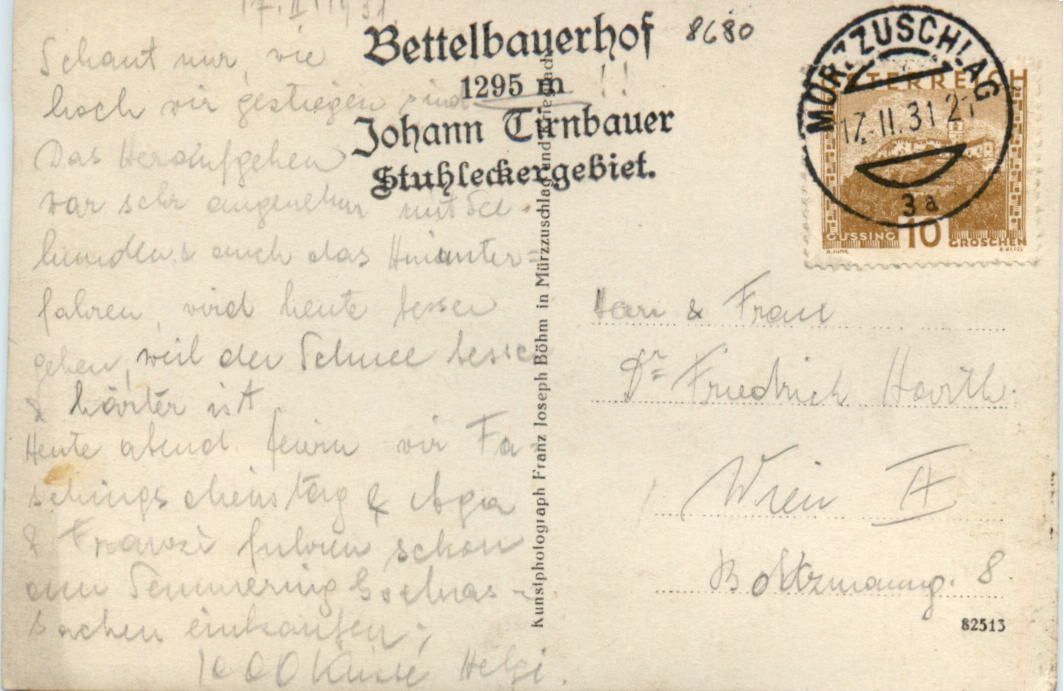 17.II.1931.
Schaut nur, wie
hoch wir gestiegen sind!!
Das Heraufgehen
war sehr angenehm mit See
hunden & auch das Hinunter=
fahren, wird heute besser
gehen, weil der Schnee besser
& härter ist
Heute abend feiern wir Fa-
schingsdienstag &
& Franzi fuhren schon
zum Semmering
sachen einkaufen.
1000 Küsse Helgi.
Bettelbauerhof
1295 m
Johann Tirnbauer
Stuhleckergebiet.
8680
MÜRZZUSCHLAG
17.II.31 21
3a
ÖSTERREICH
GÜSSING 10 GROSCHEN
Kunstphotograph Franz Joseph Böhm in Mürzzuschlag und
Herr & Frau
Dr. Friedrich
Wien IX
Boltzmanng. 8
82513